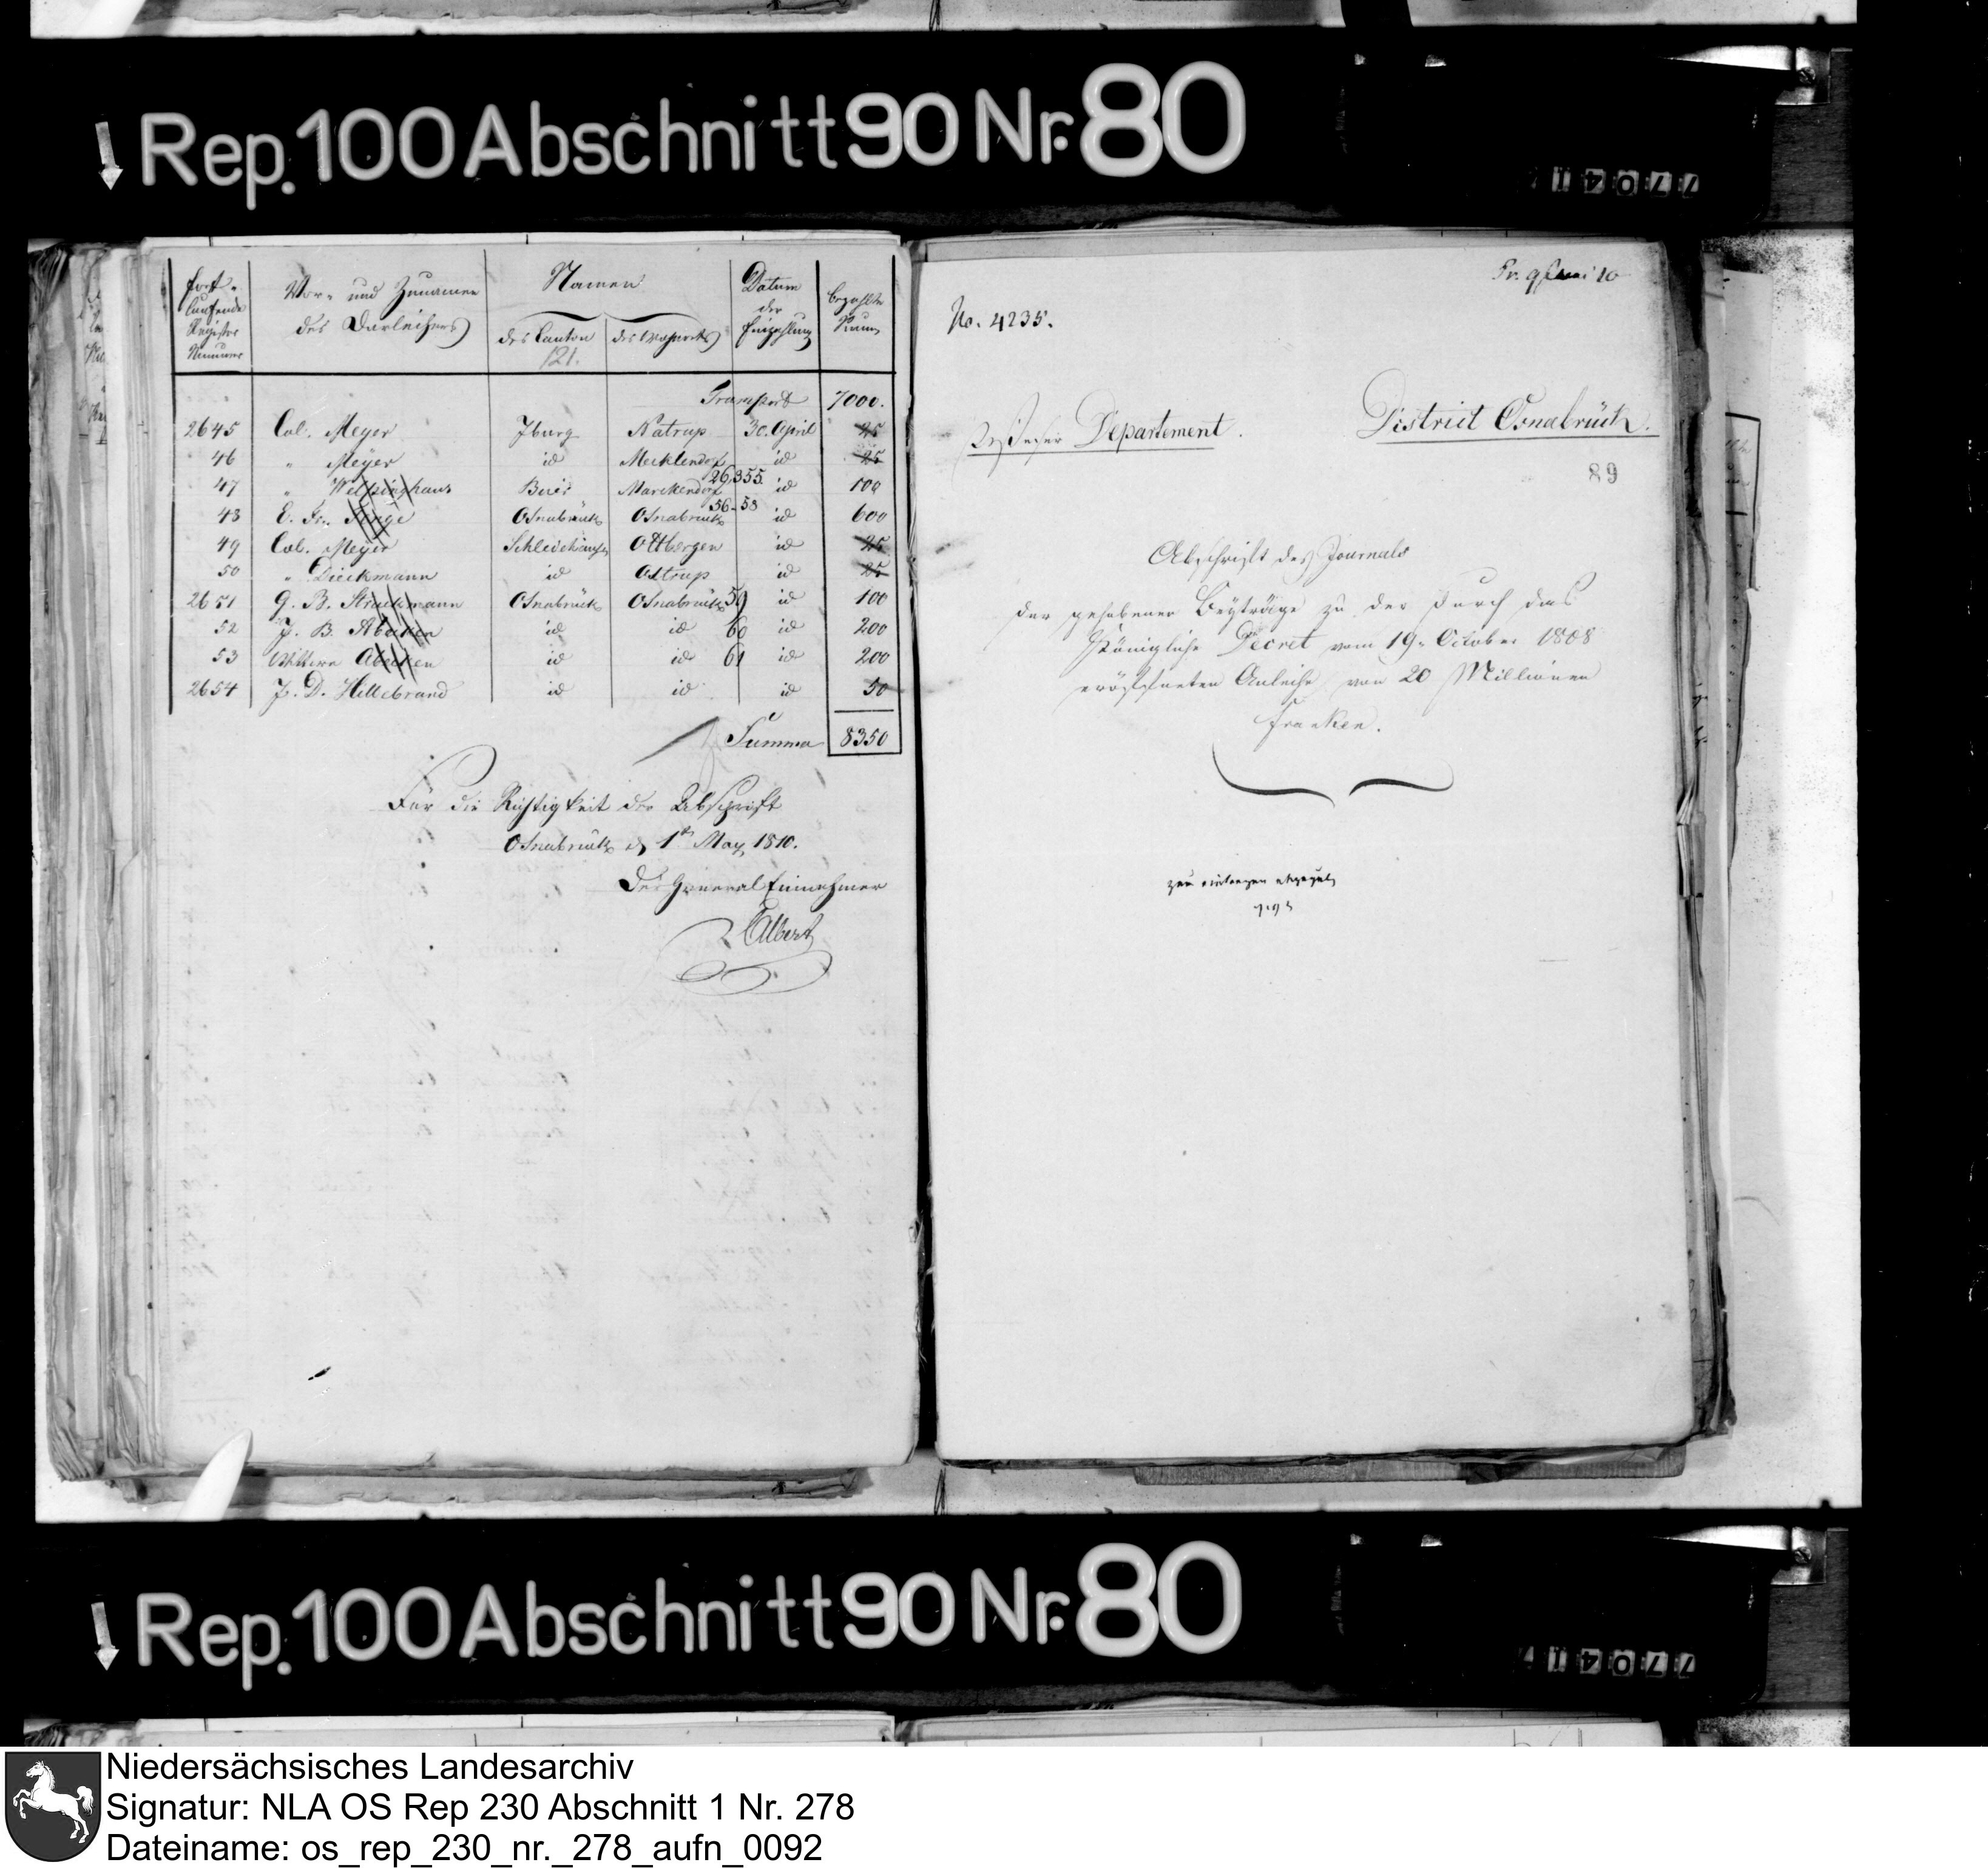 Rep. 100 Abschnitt 90 Nr. 80
77041
fort-
laufende
Register
Nummer
Vor- und Zunamen
des Darleihers
Namen
des Canton
des Wohnorts
121.
Datum
der
Einzahlung
bezahlte
Summe
Transport 7000.
2645 Col. Meyer Iburg Natrup 30. April 25
46 " Meyer id Mecklendorf id 25
26,355
47 " Welpinghaus Buer Marckendorf id 100
56-58
48 E. Fr. Buer Osnabrück Osnabrück id 600
49 Col. Meyer Schledehausen Ottbergen id 25
50 " Dieckmann id Ostrup id 25
2651 G. B. Struckmann Osnabrück Osnabrück 59 id 100
52 J. B. Abeken id id 60 id 200
53 Wittwe Abeken id id 61 id 200
2654 J. D. Hillebrand id id id 50
Summa 8350
Für die Richtigkeit der Abschrift
Osnabrück d. 1t May 1810.
Der General Einnehmer
Albert
Pr. 9 Juni 10
No. 4235.
Weser Departement.
District Osnabrück.
89
Abschrift des Journals
der gehobener Beyträge zu der durch das
Königliche Decret vom 19. October 1808
eröffneten Anleihe von 20 Millionen
Franken.
Rep. 100 Abschnitt 90 Nr. 80
77041
Niedersächsisches Landesarchiv
Signatur: NLA OS Rep 230 Abschnitt 1 Nr. 278
Dateiname: os_rep_230_nr._278_aufn_0092